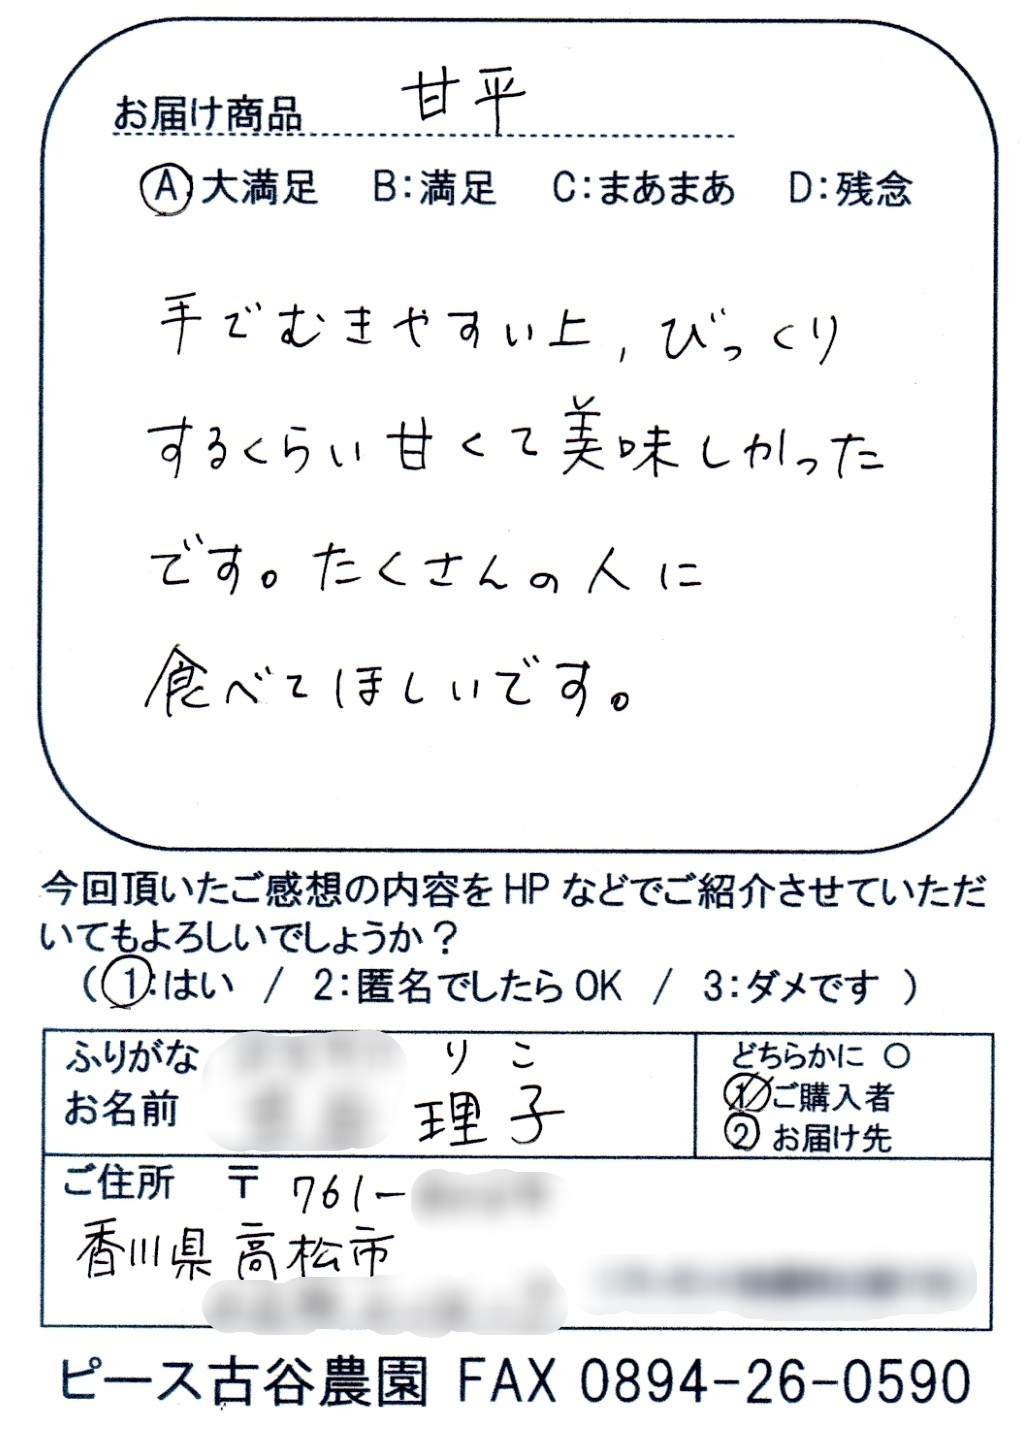 お届け商品 甘平
A 大満足 B:満足 C:まあまあ D:残念
手でむきやすい上,びっくり
するくらい甘くて美味しかった
です。たくさんの人に
食べてほしいです。
今回頂いたご感想の内容をHPなどでご紹介させていただ
いてもよろしいでしょうか?
(1:はい / 2:匿名でしたらOK / 3:ダメです )
ふりがな りこ
お名前 理子
どちらかに ○
1 ご購入者
2 お届け先
ご住所 〒 761-
香川県 高松市
ピース古谷農園 FAX 0894-26-0590